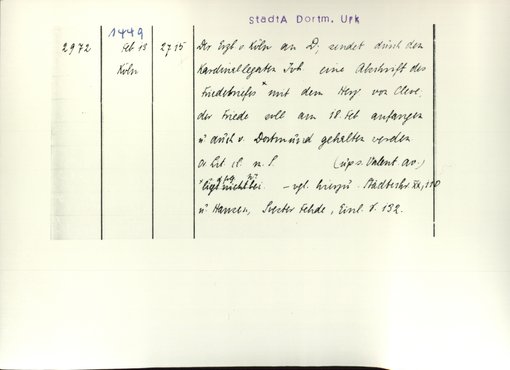 StadtA Dortm. Urk
1449
2972 Feb 13 2715 Der Erzb v Köln an D, sendet durch den
Köln Kardinallegaten Joh. eine Abschrift des
Friedebriefes x mit dem Herzg von Cleve.
der Friede soll am 18. Feb anfangen
u auch v. Dortmund gehalten werden
Or lit cl. m. S. (ups. Valent. av.)
x liegt nicht bei. – vgl. hierzu Städtechr. XX, 110
u Hansen, Soester Fehde, Einl. S. 132.